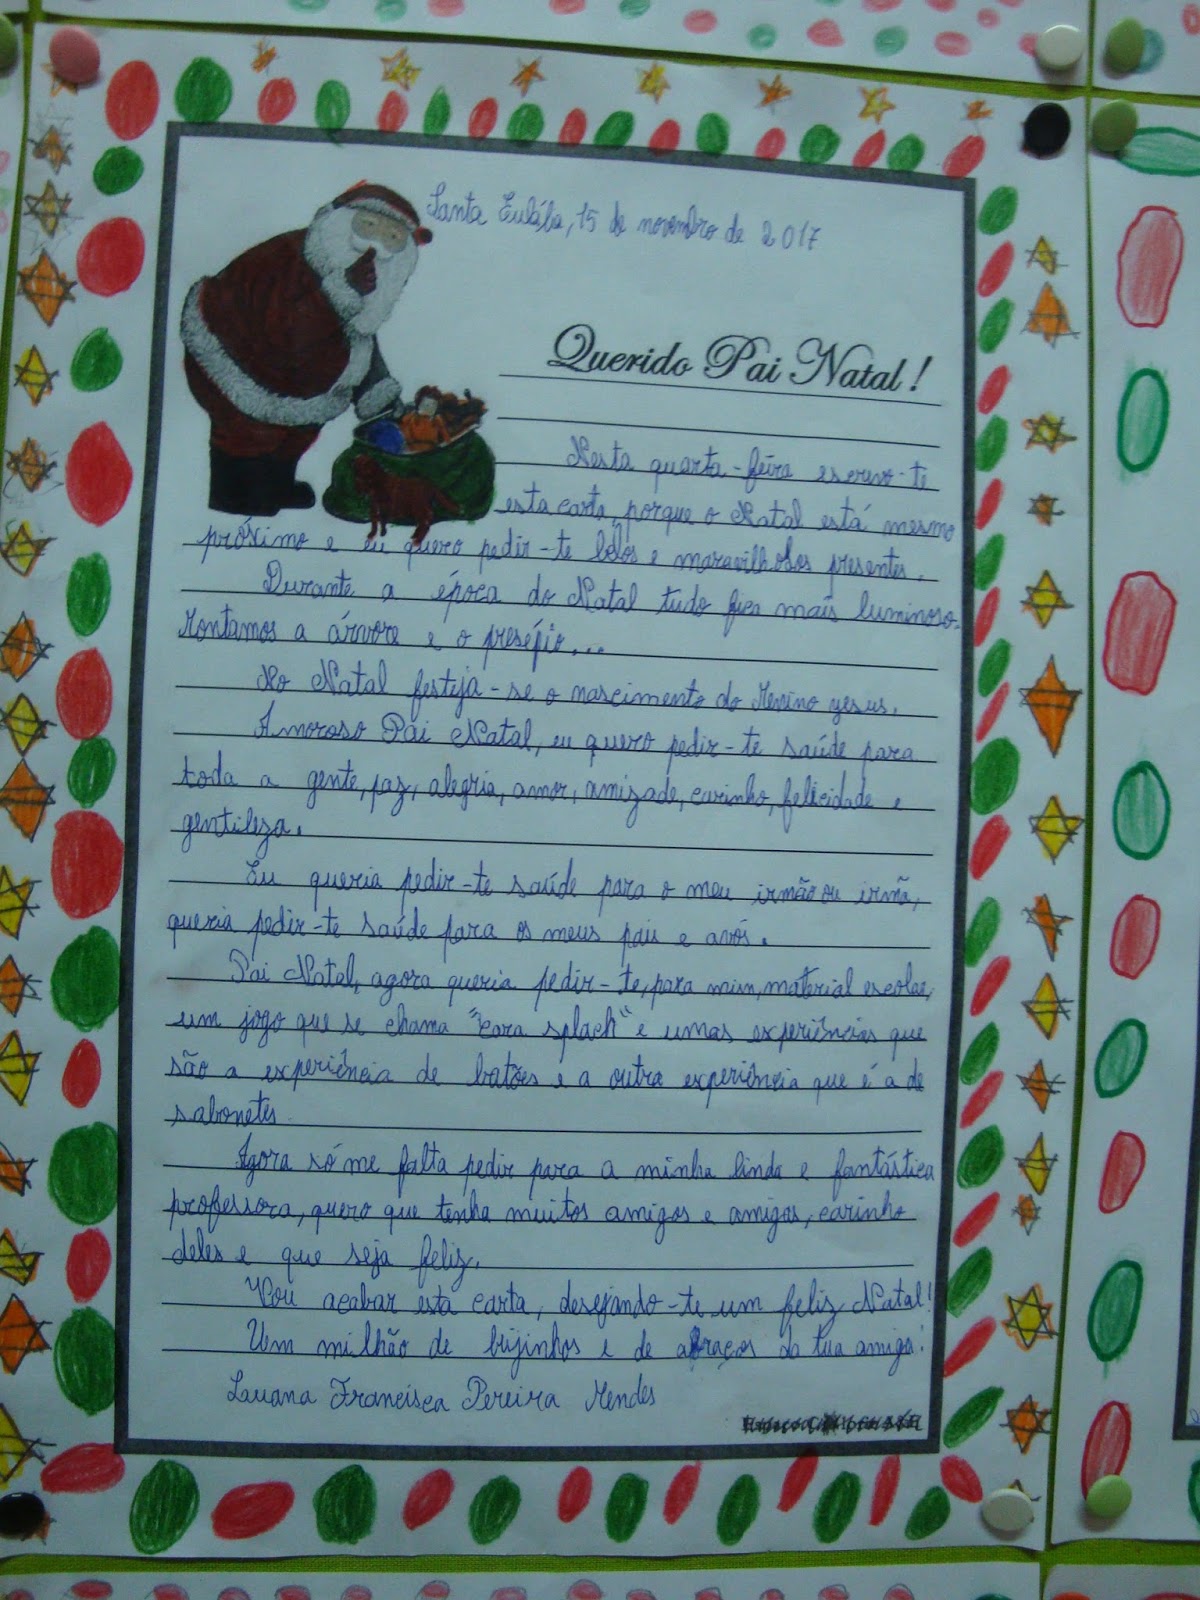 Santa Eulália, 15 de novembro de 2017
Querido Pai Natal!
Nesta quarta-feira escrevo-te
esta carta, porque o Natal está mesmo
próximo e eu quero pedir-te belos e maravilhosos presentes.
Durante a época do Natal tudo fica mais luminoso.
Montamos a árvore e o presépio...
No Natal festeja-se o nascimento do Menino yesus.
Amoroso Pai Natal, eu quero pedir-te saúde para
toda a gente, paz, alegria, amor, amizade, carinho, felicidade e
gentileza.
Eu queria pedir-te saúde para o meu irmão ou irmã,
queria pedir-te saúde para os meus pais e avós.
Pai Natal, agora queria pedir-te, para mim, material escolar,
um jogo que se chama "cara splach" e umas experiências que
são a experiência de batões e a outra experiência que é a de
sabonetes.
Agora só me falta pedir para a minha linda e fantástica
professora, quero que tenha muitos amigos e amigas, carinho
deles e que seja feliz.
Vou acabar esta carta, desejando-te um feliz Natal!
Um milhão de beijinhos e de abraços da tua amiga:
Luana Francisca Pereira Mendes